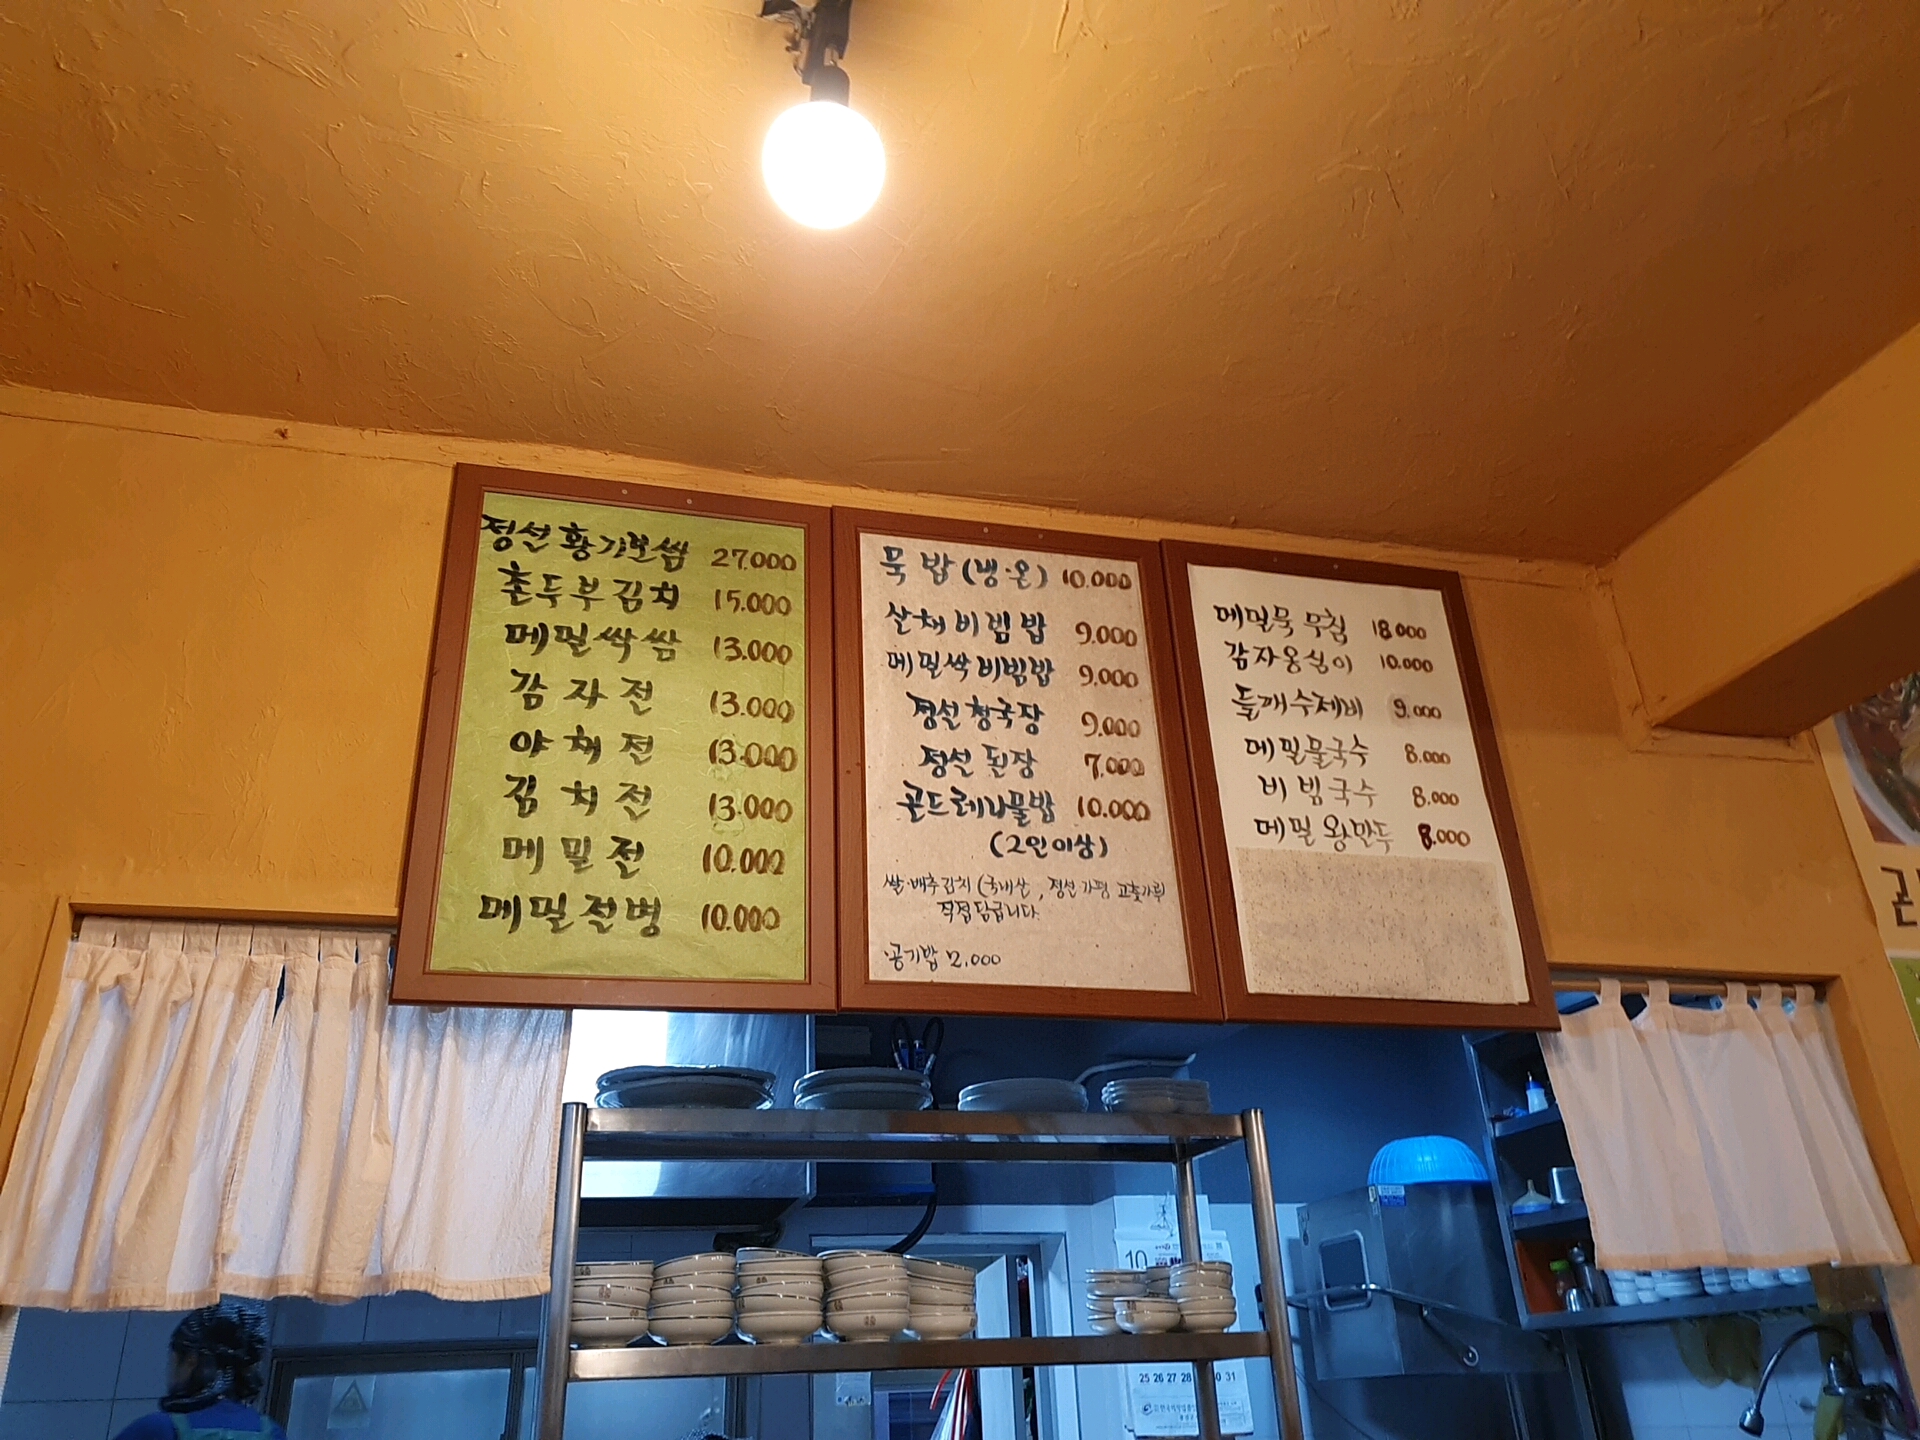 정선황기보쌈 27.000
촌두부김치 15.000
메밀싹쌈 13.000
감자전 13.000
야채전 13.000
김치전 13.000
메밀전 10.000
메밀전병 10.000
묵밥(냉·온) 10.000
산채비빔밥 9.000
메밀싹비빔밥 9.000
정선청국장 9.000
정선된장 7.000
곤드레나물밥 10.000
(2인이상)
쌀·배추김치(국내산, 정선가평 고춧가루)
직접담급니다.
·공기밥 2.000
메밀묵무침 18.000
감자옹심이 10.000
들깨수제비 9.000
메밀물국수 8.000
비빔국수 8.000
메밀왕만두 8.000
10
25 26 27 28 30 31